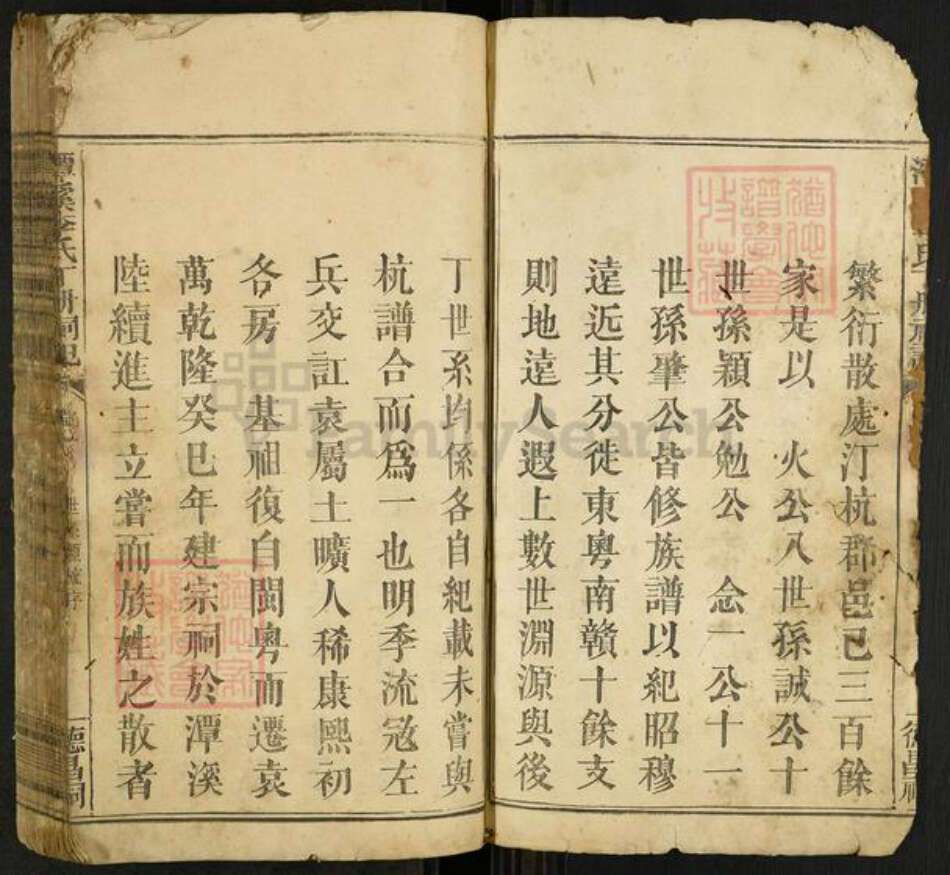 繁衍散處汀杭郡邑已三百餘
家是以 火公八世孫誠公十
世孫穎公勉公 念一公十一
世孫肇公皆修族譜以紀昭穆
逺近其分徙東粵南贛十餘支
則地逺人遐上數世淵源與後
丁世系均係各自紀載未嘗與
杭譜合而爲一也明季流宼左
兵交訌袁屬土曠人稀康熙初
各房 基祖復自閩粵而遷袁
萬乾隆癸巳年建宗祠於潭溪
陸續進主立嘗而族姓之散者
潭溪李氏丁册祠記
德昌祠
FamilySearch